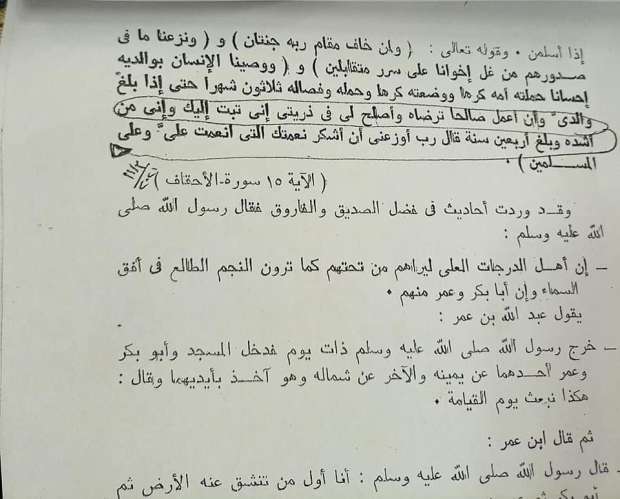 إذا أسلمن . وقوله تعالى : ( وان خاف مقام ربه جنتان ) و ( ونزعنا ما فى
صدورهم من غل إخوانا على سرر متقابلين ) و ( ووصينا الإنسان بوالديه
إحسانا حملته أمه كرها ووضعته كرها وحمله وفصاله ثلاثون شهرا حتى إذا بلغ
والدى وأن أعمل صالحا ترضاه وأصلح لى فى ذريتى إنى تبت إليك وإنى من
أشده وبلغ أربعين سنة قال رب أوزعنى أن أشكر نعمتك التى أنعمت علىّ وعلى
المسلمين ) .
( الآية ١٥ سورة الأحقاف )
وقد وردت أحاديث فى فضل الصديق والفاروق فقال رسول الله صلى
الله عليه وسلم :
– إن أهل الدرجات العلى ليراهم من تحتهم كما ترون النجم الطالع فى أفق
السماء وإن أبا بكر وعمر منهم .
يقول عبد الله بن عمر :
– خرج رسول الله صلى الله عليه وسلم ذات يوم فدخل المسجد وأبو بكر
وعمر أحدهما عن يمينه والآخر عن شماله وهو آخذ بأيديهما وقال :
هكذا نبعث يوم القيامة .
ثم قال ابن عمر :
– قال رسول الله صلى الله عليه وسلم : أنا أول من تنشق عنه الأرض ثم
أبو بكر